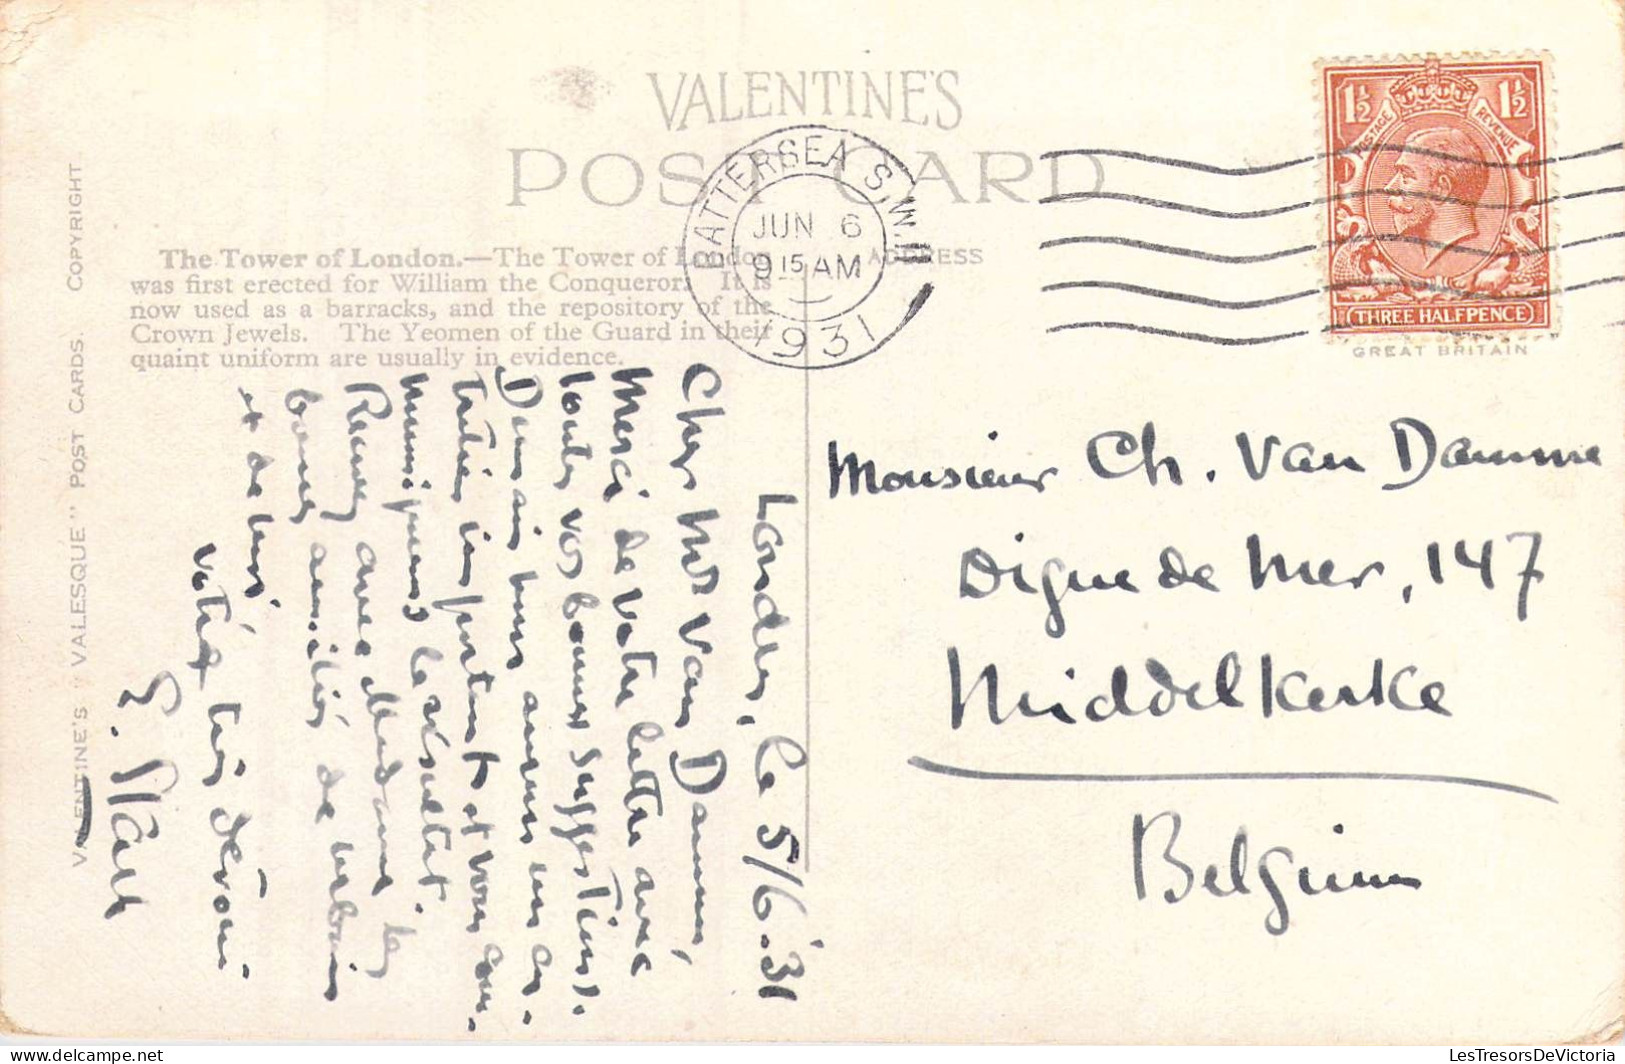 VALENTINE'S
POST CARD
BATTERSEA S.W.11
JUN 6
9 15 AM
1931
1½ 1½
POSTAGE REVENUE
THREE HALFPENCE
GREAT BRITAIN
ADDRESS
The Tower of London.—The Tower of London
was first erected for William the Conqueror. It is
now used as a barracks, and the repository of the
Crown Jewels. The Yeomen of the Guard in their
quaint uniform are usually in evidence.
VALENTINE'S "VALESQUE" POST CARDS. COPYRIGHT
Londres, le 5/6.'31
Cher Mr Van Damme,
Merci de votre lettre avec
toutes vos bonnes suggestions.
Demain nous aurons un en-
tretien important et vous com-
muniquerons le résultat.
Recevez avec Madame les
bonnes amitiés de
et de lui
votre très dévoué
Monsieur Ch. Van Damme
Digue de Mer, 147
Middelkerke
Belgium
LesTresorsDeVictoria
delcampe.net